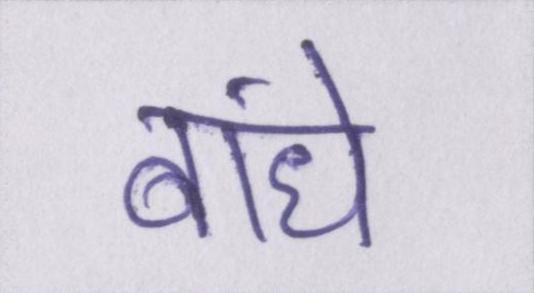 बांधे